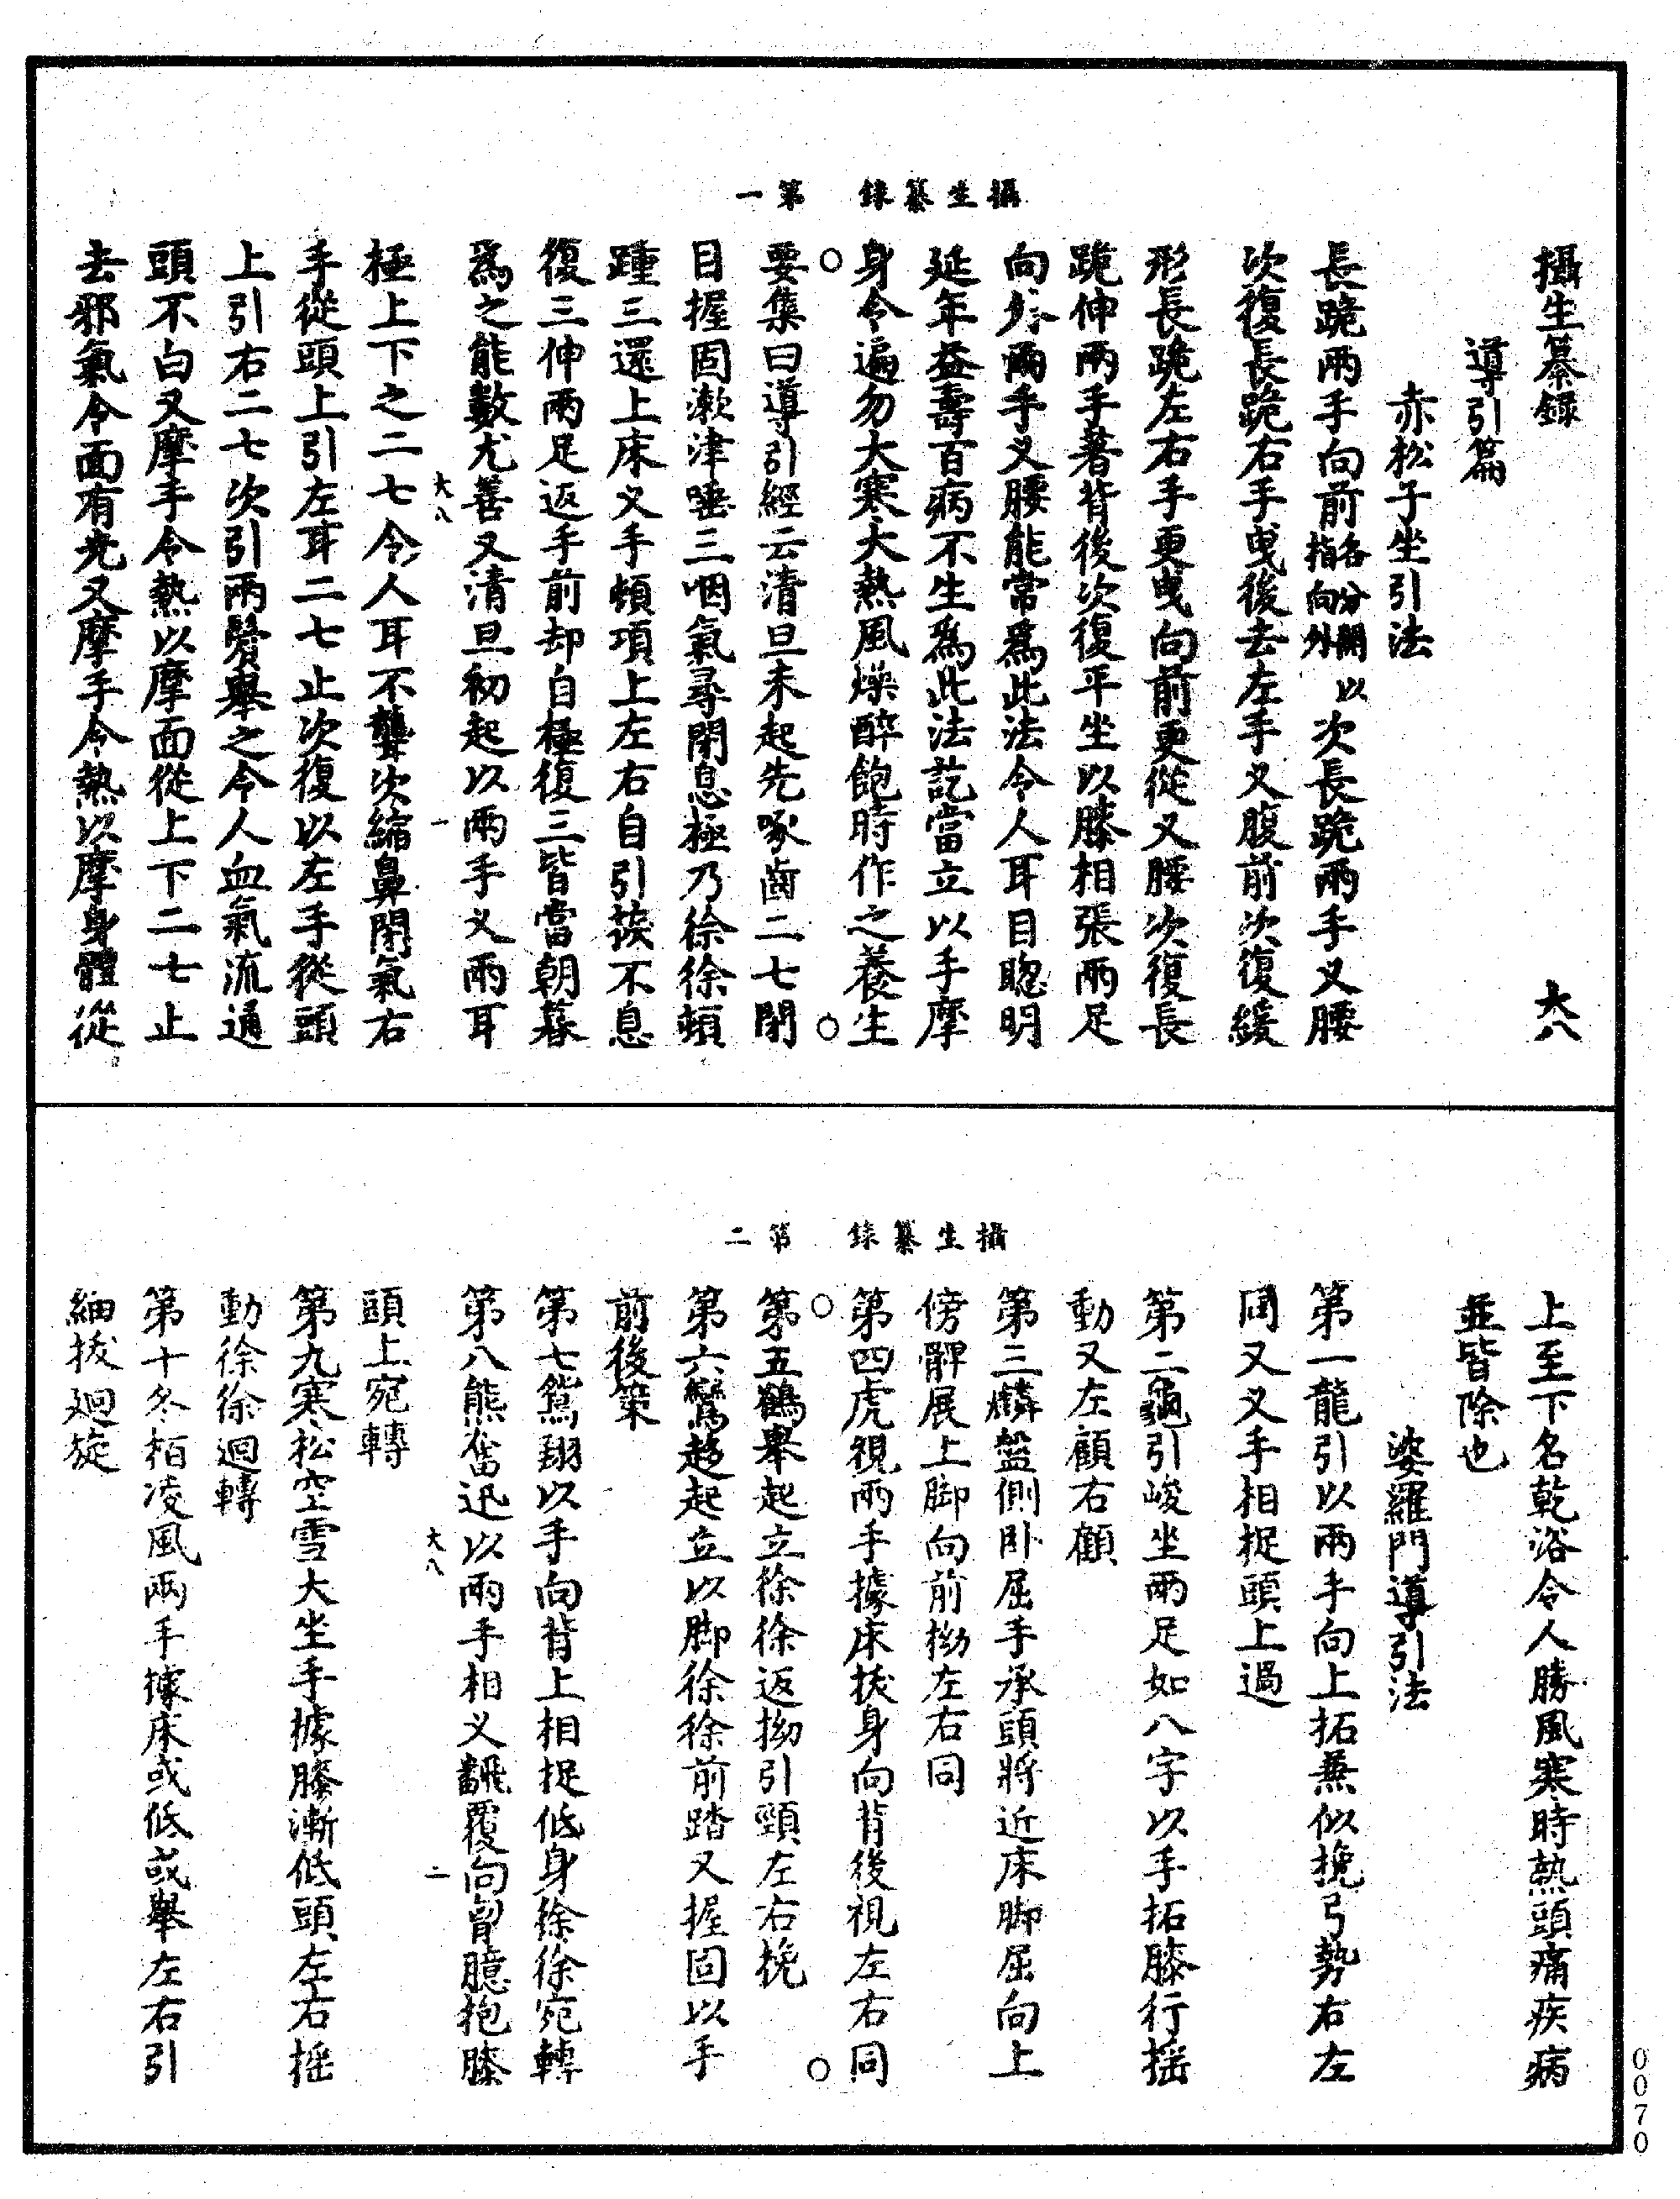 攝生纂錄　第一
攝生纂録　大八
導引篇
赤松子坐引法
長跪兩手向前各分開指向外以次長跪兩手叉腰
次復長跪右手曳後去左手叉腹前次復緩
形長跪左右手更曳向前更從叉腰次復長
跪伸兩手著背後次復平坐以膝相張兩足
向外兩手叉腰能常爲此法令人耳目聰明
延年益壽百病不生爲此法訖當立以手摩
身令遍勿大寒大熱風燥醉飽時作之養生
要集曰導引經云清旦未起先啄齒二七閉
目握固漱津唾三咽氣尋閉息極乃徐徐頓
踵三還上床叉手頓項上左右自引挨不息
復三伸兩足返手前却自極復三皆當朝暮
爲之能數尤善又清旦初起以兩手叉兩耳
大八　一
極上下之二七令人耳不聾次縮鼻閉氣右
手從頭上引左耳二七止次復以左手從頭
上引右二七次引兩鬢舉之令人血氣流通
頭不白又摩手令熱以摩面從上下二七止
去邪氣令面有光又摩手令熱以摩身體從
攝生纂錄　第二
上至下名乾浴令人勝風寒時熱頭痛疾病
並皆除也
婆羅門導引法
第一龍引以兩手向上拓兼似挽弓勢右左
同又叉手相捉頭上過
第二龜引峻坐兩足如八字以手拓膝行搖
動又左顧右顧
第三麟盤側卧屈手承頭將近床脚屈向上
傍髀展上脚向前拗左右同
第四虎視兩手據床拔身向背後視左右同
第五鶴舉起立徐徐返拗引頸左右挽
第六鸞趨起立以脚徐徐前踏又握固以手
前後策
第七鴛翔以手向背上相捉低身徐徐宛轉
第八熊奮迅以兩手相叉翻覆向胷臆抱膝
大八　二
頭上宛轉
第九寒松空雪大坐手據膝漸低頭左右搖
動徐徐迴轉
第十冬栢凌風兩手據床或低或舉左右引
細拔迴旋
0070